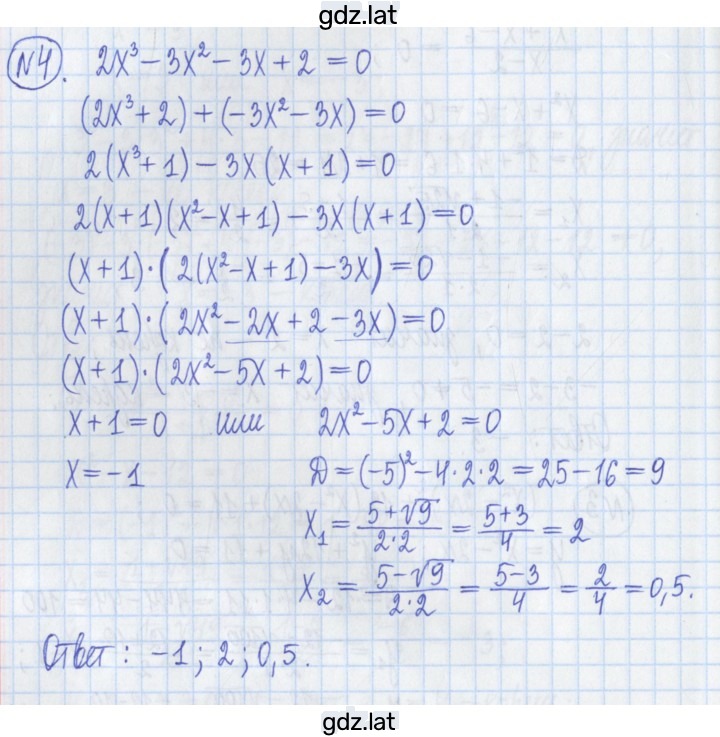 gdz.lat
№4. 2x³ − 3x² − 3x + 2 = 0
(2x³ + 2) + (−3x² − 3x) = 0
2(x³ + 1) − 3x(x + 1) = 0
2(x + 1)(x² − x + 1) − 3x(x + 1) = 0
(x + 1)·(2(x² − x + 1) − 3x) = 0
(x + 1)·(2x² − 2x + 2 − 3x) = 0
(x + 1)·(2x² − 5x + 2) = 0
x + 1 = 0 или 2x² − 5x + 2 = 0
x = −1 Д = (−5)² − 4·2·2 = 25 − 16 = 9
x₁ = (5 + √9)/(2·2) = (5 + 3)/4 = 2
x₂ = (5 − √9)/(2·2) = (5 − 3)/4 = 2/4 = 0,5.
Ответ: −1; 2; 0,5.
gdz.lat